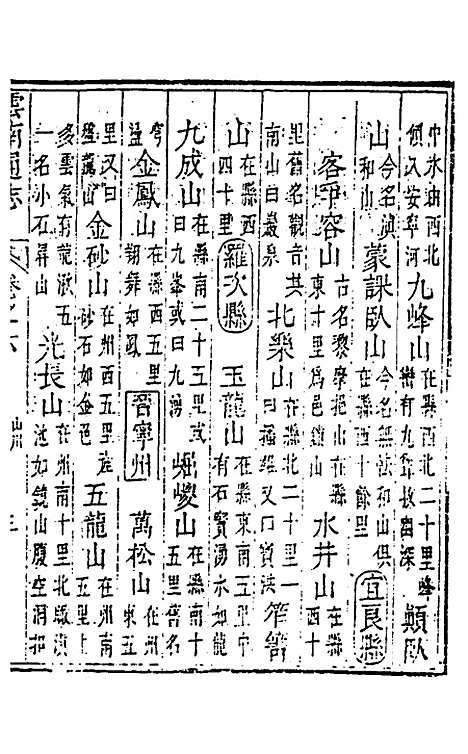 中水油西北傾入安寧河九峰山在縣西北二十里峰巒有九聳拔幽深顛臥
山今名滇和山蒙課臥山今名無法和山俱在縣西十餘里宜良縣
客爭容山古名黎摩挹山在縣東十里爲邑鎮水井山在縣西十
里舊名觀音其南山曰巖泉北樂山在縣北二十里一曰孤維又曰寶洪
山在縣西四十里羅次縣玉龍山在縣東南五里中有石竇湧水如龍
九成山在縣南二十五里或曰九峯或曰九湧山在縣南十五里舊名
穹金鳳山在縣西五里翔舞如鳳晉寧州萬松山在州東五
里又曰盤龍山金砂山在州西五里産砂石如金色五龍山在州南五里上
多雲氣有龍湫五一名小石屏山光長山在州南十里北臨滇池如鏡山腹空洞邪
雲南通志 卷之六 山川 三